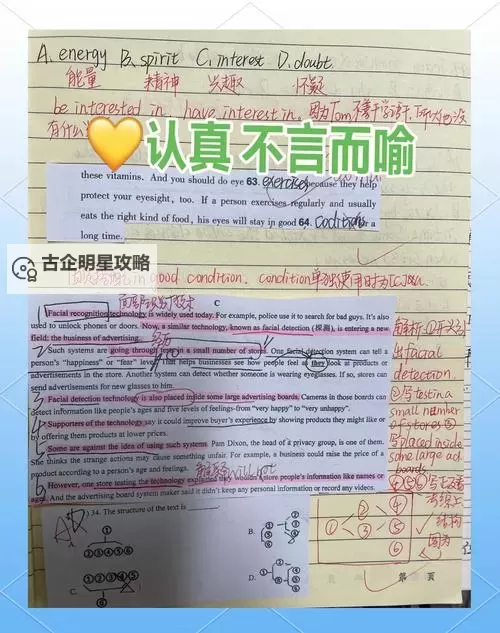 A. energy B. spirit C. interest D. doubt.
能量 精神 兴趣 怀疑
be interested in. have interest in. 因为Tom不善于学习,所以他没
有什么
💛认真 不言而喻
these vitamins. And you should do eye 63. exercises because they help
protect your eyesight, too. If a person exercises regularly and usually
eats the right kind of food, his eyes will stay in good 64. condition for a
long time.
古企明星攻略
in good condition. condition单独使用时为
C
1 Facial recognition technology is widely used today. For example, police use it to search for bad guys. It's also
used to unlock phones or doors. Now, a similar technology, known as facial detection (探测), is entering a new
field: the business of advertising.
2 Such systems are going through in a small number of stores. One facial detection system can tell a
person's "happiness" or "fear" level. That helps businesses see how people feel as they look at products or
advertisements in the store. Another system can detect whether someone is wearing eyeglasses. If so, stores can
send advertisements for new glasses to him.
3 Facial detection technology is also placed inside some large advertising boards. Cameras in those boards can
detect information like people's ages and five levels of feelings-from "very happy" to "very unhappy".
4 Supporters of the technology say it could improve buyer's experience by showing products they might like or
by offering them products at lower prices.
5 Some are against the idea of using such systems. Pam Dixon, the head of a privacy group, is one of them.
She thinks the strange actions may cause something unfair. For example, a business could raise the price of a
product according to a person's age and feelings.
will not
6 However, one store testing the technology explained they wouldn't store people's information like names or
ages. And the advertising board system maker said it didn't keep any personal information or record any videos.
出facial
detection.
②写testing a
small number
of stores ③
写placed inside
some large ad
boards.
④⑤⑥
结构
图为
34. The structure of the text is
A.
①
②③④⑤⑥
B.
C.
①②③④⑤
⑥
D.
② ④
① ③ ⑤
⑥
页